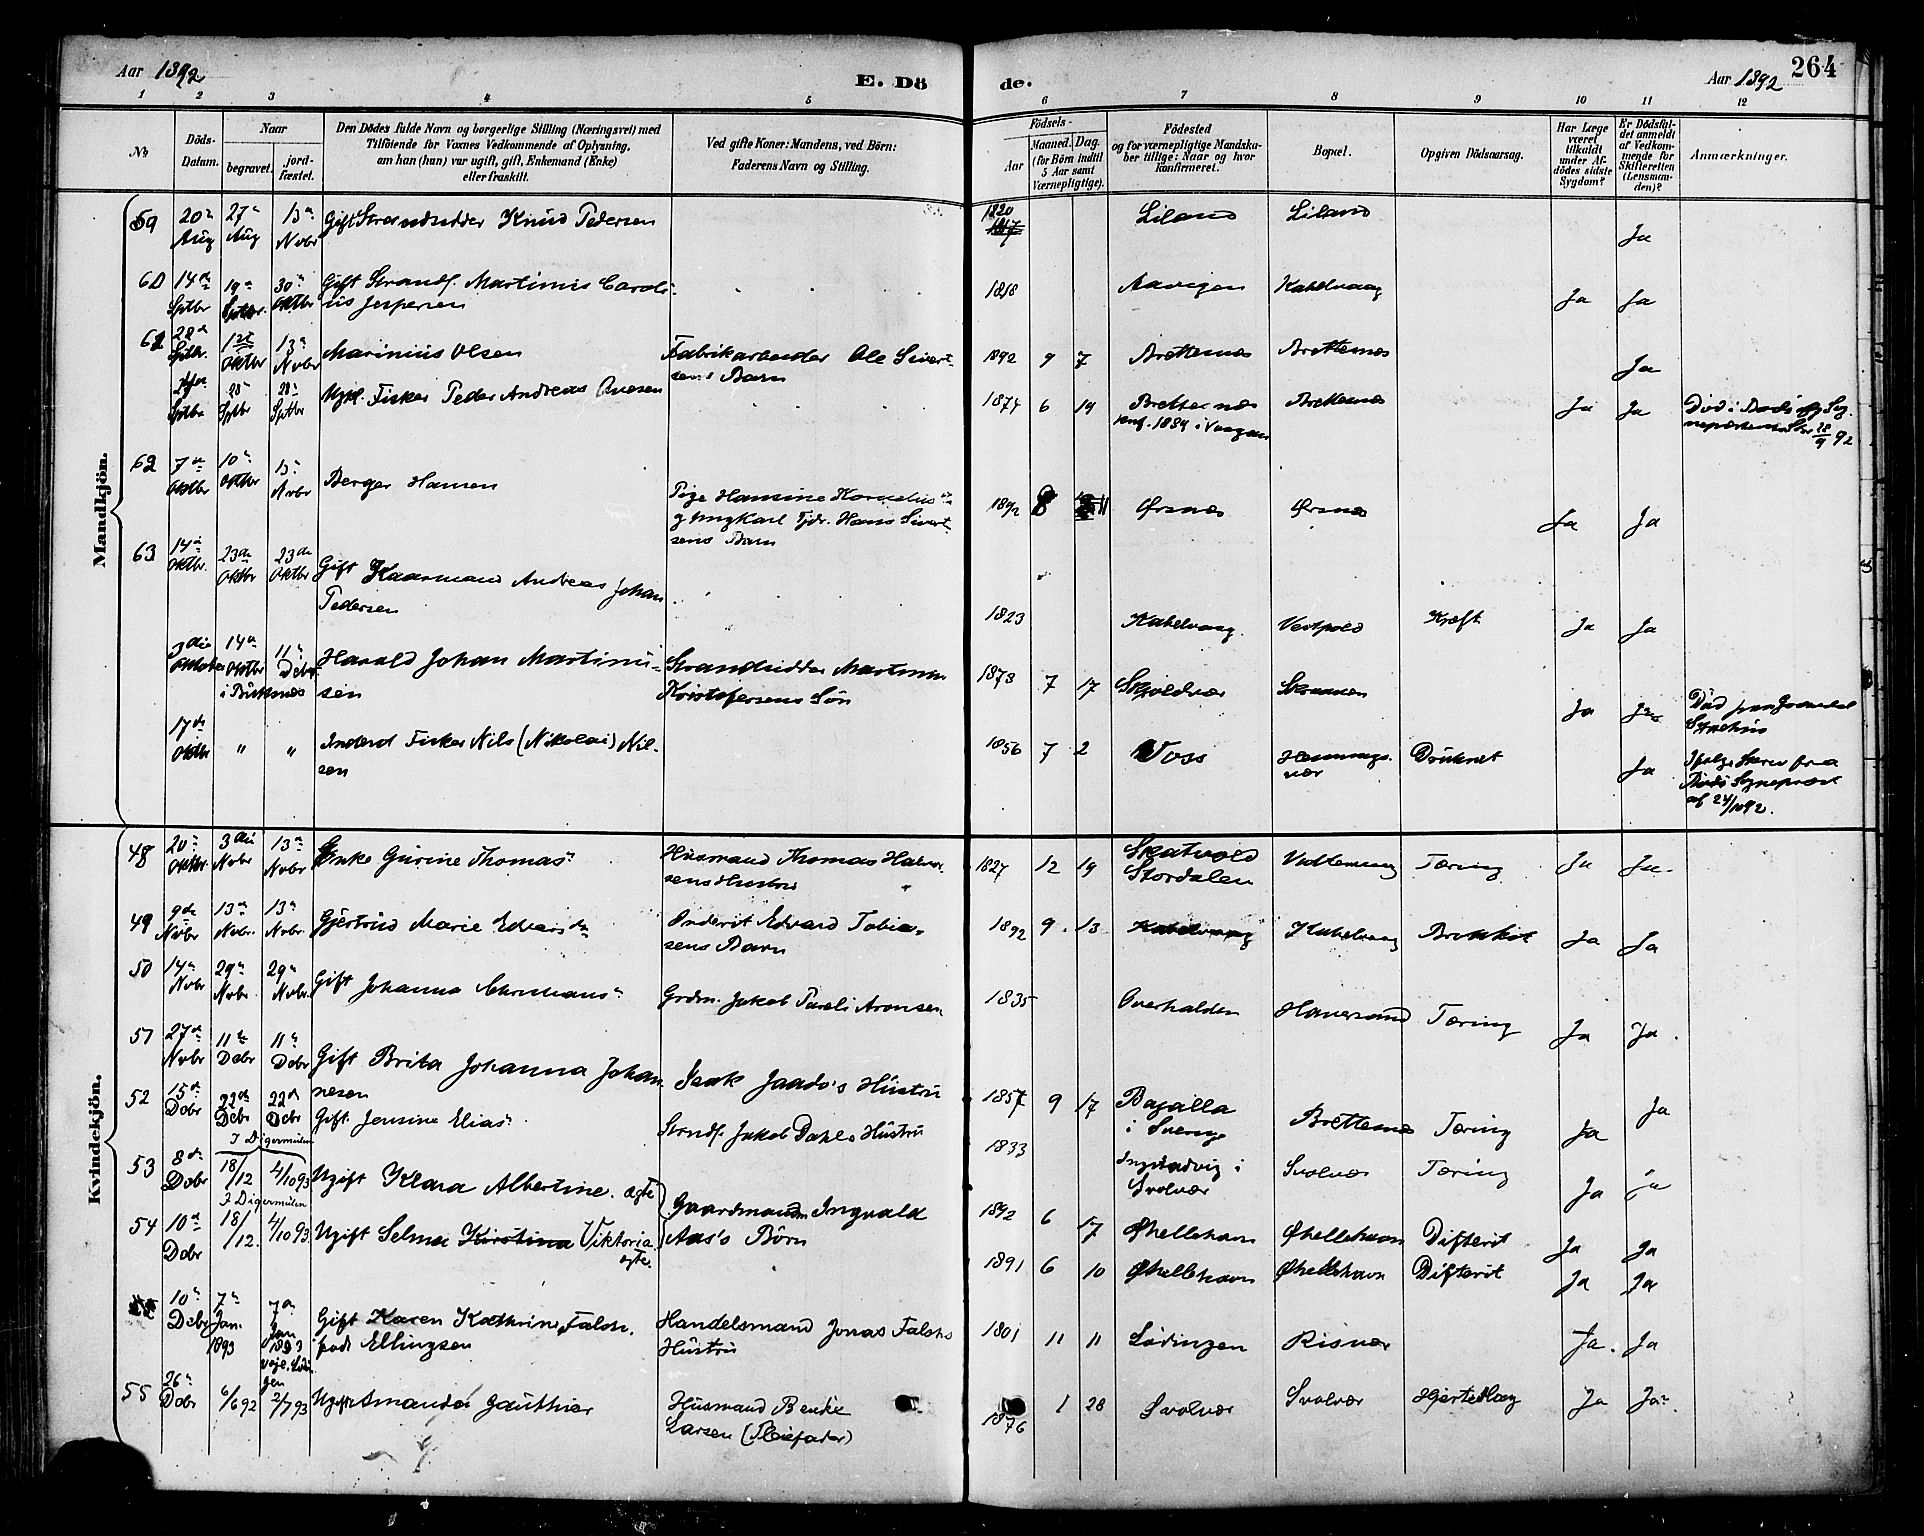 Aar 1892
E. Dö
de.
Aar 1892
264
1 2 3 4 5 6 7 8 9 10 11 12
No.
Döds-
Datum.
Naar
begravet.
jord-
fæstet.
Den Dödes fulde Navn og borgerlige Stilling (Næringsvei) med
Tilföiende for Voxnes Vedkommende af Oplysning,
om han (hun) var ugift, gift, Enkemand (Enke)
eller fraskilt.
Ved gifte Koner: Mandens, ved Börn:
Faderens Navn og Stilling.
Födsels-
Aar
Maaned. Dag.
(for Börn indtil
5 Aar samt
Værnepligtige).
Födested
og for værnepligtige Mandska-
ber tillige: Naar og hvor
konfirmeret.
Bopæl.
Opgiven Dödsaarsag.
Har Læge
været
tilkaldt
under Af-
dödes sidste
Sygdom?
Er Dödsfal-
det anmeldt
af Vedkom-
mende for
Skifteretten
(Lensman-
den)?
Anmærkninger.
Mandkjön.
59 20 Aug 27 Aug 13 Nvbr Gift Strandsidder Knud Pedersen 1820 Liland Liland Ja
60 14de Sptbr 19 Sptbr. 30 Oktbr Gift Strandf. Martinus Caroli-
nus Jespersen 1818 Aavigen Kabelvaag Ja Ja
61 28de Sptbr. 1ste Oktbr 13 Nvbr Marinius Olsen Fabrikarbeider Ole Sivert-
sens Barn 1892 9 7 Brettesnæs Brettesnæs Ja
Sptbr 28 Sptbr 28 Sptbr Ugft. Fisker Peder Andreas Ovesen 1874 6 19 Brettesnæs
konf. 1889 i Vaagan Brettesnæs Ja Ja Död i Bodö
92
62 7de Oktbr 10 Oktbr 13 Nvbr Berger Hansen Pige Hansine Kornelius
og Ungkarl Fisker Hans Sivert-
sens Barn 1892 8 11 Örsnæs Örsnæs Ja Ja
63 14de Oktbr. 23de Oktbr 23de Oktbr Gift Kaarmand Andreas Johan
Pedersen 1823 Kabelvaag. Vestpold Kræft Ja Ja
3die Oktober 14de Oktbr 11 Debr Harald Johan Martinu-
sen Strandsidder Martinus
Kristofersens Sön 1873 7 17 Skjoldvær Skraaven Ja Ja Död paa
17de Oktbr " " Inderst Fisker Nils (Nikolai) Nil-
sen 1856 7 2 Voss Hennings-
vær Druknet Ja Ifölge Skriv fra
Bodö Sogneprest
af 24/10 92.
Kvindekjön.
48 20 Oktbr. 3die Nvbr 13 Nvbr Enke Gurine Thomas Husmand Thomas Halvor
sens Hustru 1827 12 19 Skatvold
Stördalen Tæring Ja Ja.
49 9de Nvbr 13 Nvbr. 13 Nvbr. Gjertrud Marie Edvards Inderst Edvard Tobia-
sens Barn 1892 9. 13 Kabelvaag Kabelvaag Bronkit Ja Ja
50 14 Nvbr 29 Nvbr. 29 Nvbr. Gift Johanna Christians Grdm. Jakob Pareli Aronsen 1835 Overhalden Haversand Tæring Ja Ja.
51 27de Nvbr 11te Debr 11te Debr Gift Brita Johanna Johan
nesen Isak Jaado's Hustru 1857 9 17 Bajalla
i Sverige Brettesnæs Tæring Ja Ja
52 15de Debr 22de Debr 22de Debr Gift Jensine Elias Strndf. Jakob Dahls Hustru 1833
Svolvær Svolvær Tæring Ja Ja
I Digermulen
53 8de Debr 18/12 4/10 93 Ugift Klara Albertine. ægte Gaardmand Ingvald
Aas's Börn 1892 6 17 Öhellehavn Öhellehavn Difterit Ja Ja
I Digermulen
54 10de Debr 18/12. 4/10 93 Ugift Selma Kirstina Viktoria. ægte. 1891 6 10 Öhellehavn Öhellehavn Difterit Ja Ja
10 Debr 7 Jan. 1893 7de Jan 1893 Gift Karen Kathrine Falsh.
födt Ellingsen Handelsmand Jonas Falshs
Hustru 1801 11 11 Lödingen Risvær Ja. Ja
55 26 Debr 6/6 92 2/7 93 Ugift Amanda Gauthier Husmand Benke
Larsen (Pleiefader) 1876 1 28 Svolvær Svolvær Hjerteslag Ja Ja.